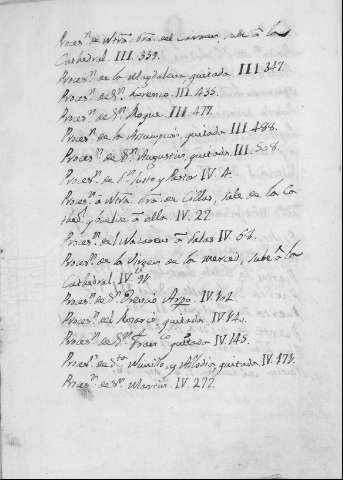 Proces.n de Ntra. Sra. del Carmen, sube â la
Cathedral. III. 339.
Proces.n de la Magdalena, quitada III. 347.
Proces.n de S.n Lorenzo. III. 435.
Proces.n de S.n Roque. III. 477.
Proces.n de la Assumpcion, quitada III. 488.
Proces.n de S.n Augustin, quitada. III. 508.
Proces.n de S.n Justo y Pastor IV. 4.
Proces.n a Ntra. Sra. de Cillas, sale de la Ca
thed.l y buelve â ella. IV. 27.
Proces.n del Nazareno â Salas IV. 66.
Proces.n de la Virgen de la Merced, sube â la
Cathedral. IV. 94.
Proces.n de S.n Pedro Arzo. IV. 102.
Proces.n del Rosario, quitada IV. 142.
Proces.n de S.n Fran.co quitada IV. 145.
Proces.n de S.ta Nunilo, y Alodia, quitada IV. 179.
Proces.n de S.n Martin. IV. 277.